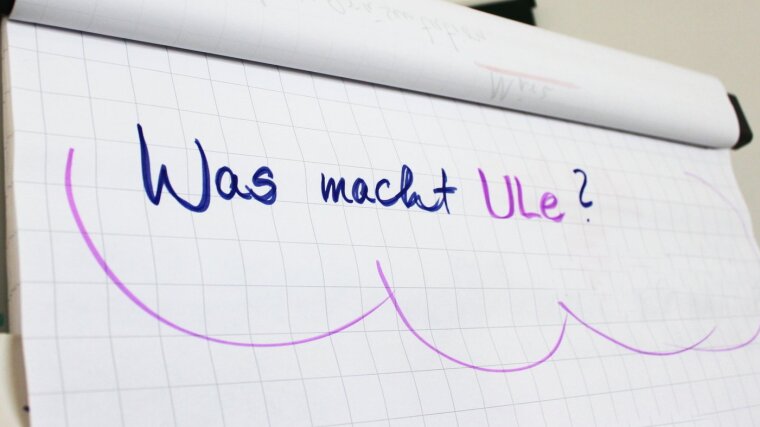 Was macht ULe?